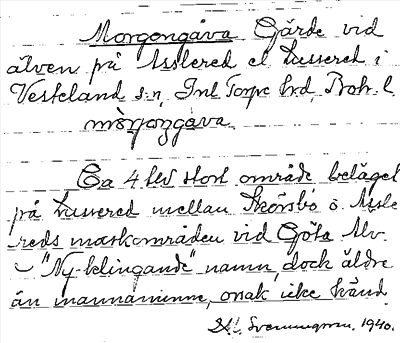 Morgongåva Gärde vid
älven på Asslered el. Lussered i
Västerland s:n, Inl. Torpe hrd, Boh. l.
mòrgongåva
Ca 4 hld stort område beläget
på Lussered mellan Skörsbo o. Assle-
reds markområden vid Göta Älv.
"Ny-klingande" namn, dock äldre
än mannaminne, orsak icke känd.
1940.